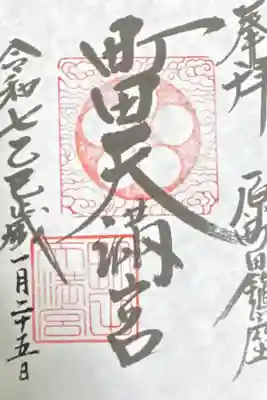 奉拝 原町田鎮座
町田天満宮
令和七乙巳歳一月二十五日